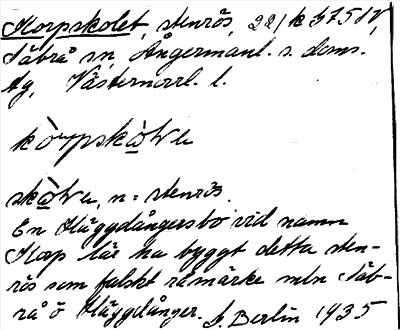 Korpskolet, stenrös, 22/k 3751V,
Säbrå sn, Ångermanl. s. doms.
tg, Västernorrl. l.
kòrpskɷ̀lvɐ
skɷ̀lvɐ, n = stenrös.
En Häggdångersbo vid namn
Korp lär ha byggt detta sten-
rös som falskt råmärke mln Säb-
rå o Häggdånger. J. Berlin 1935